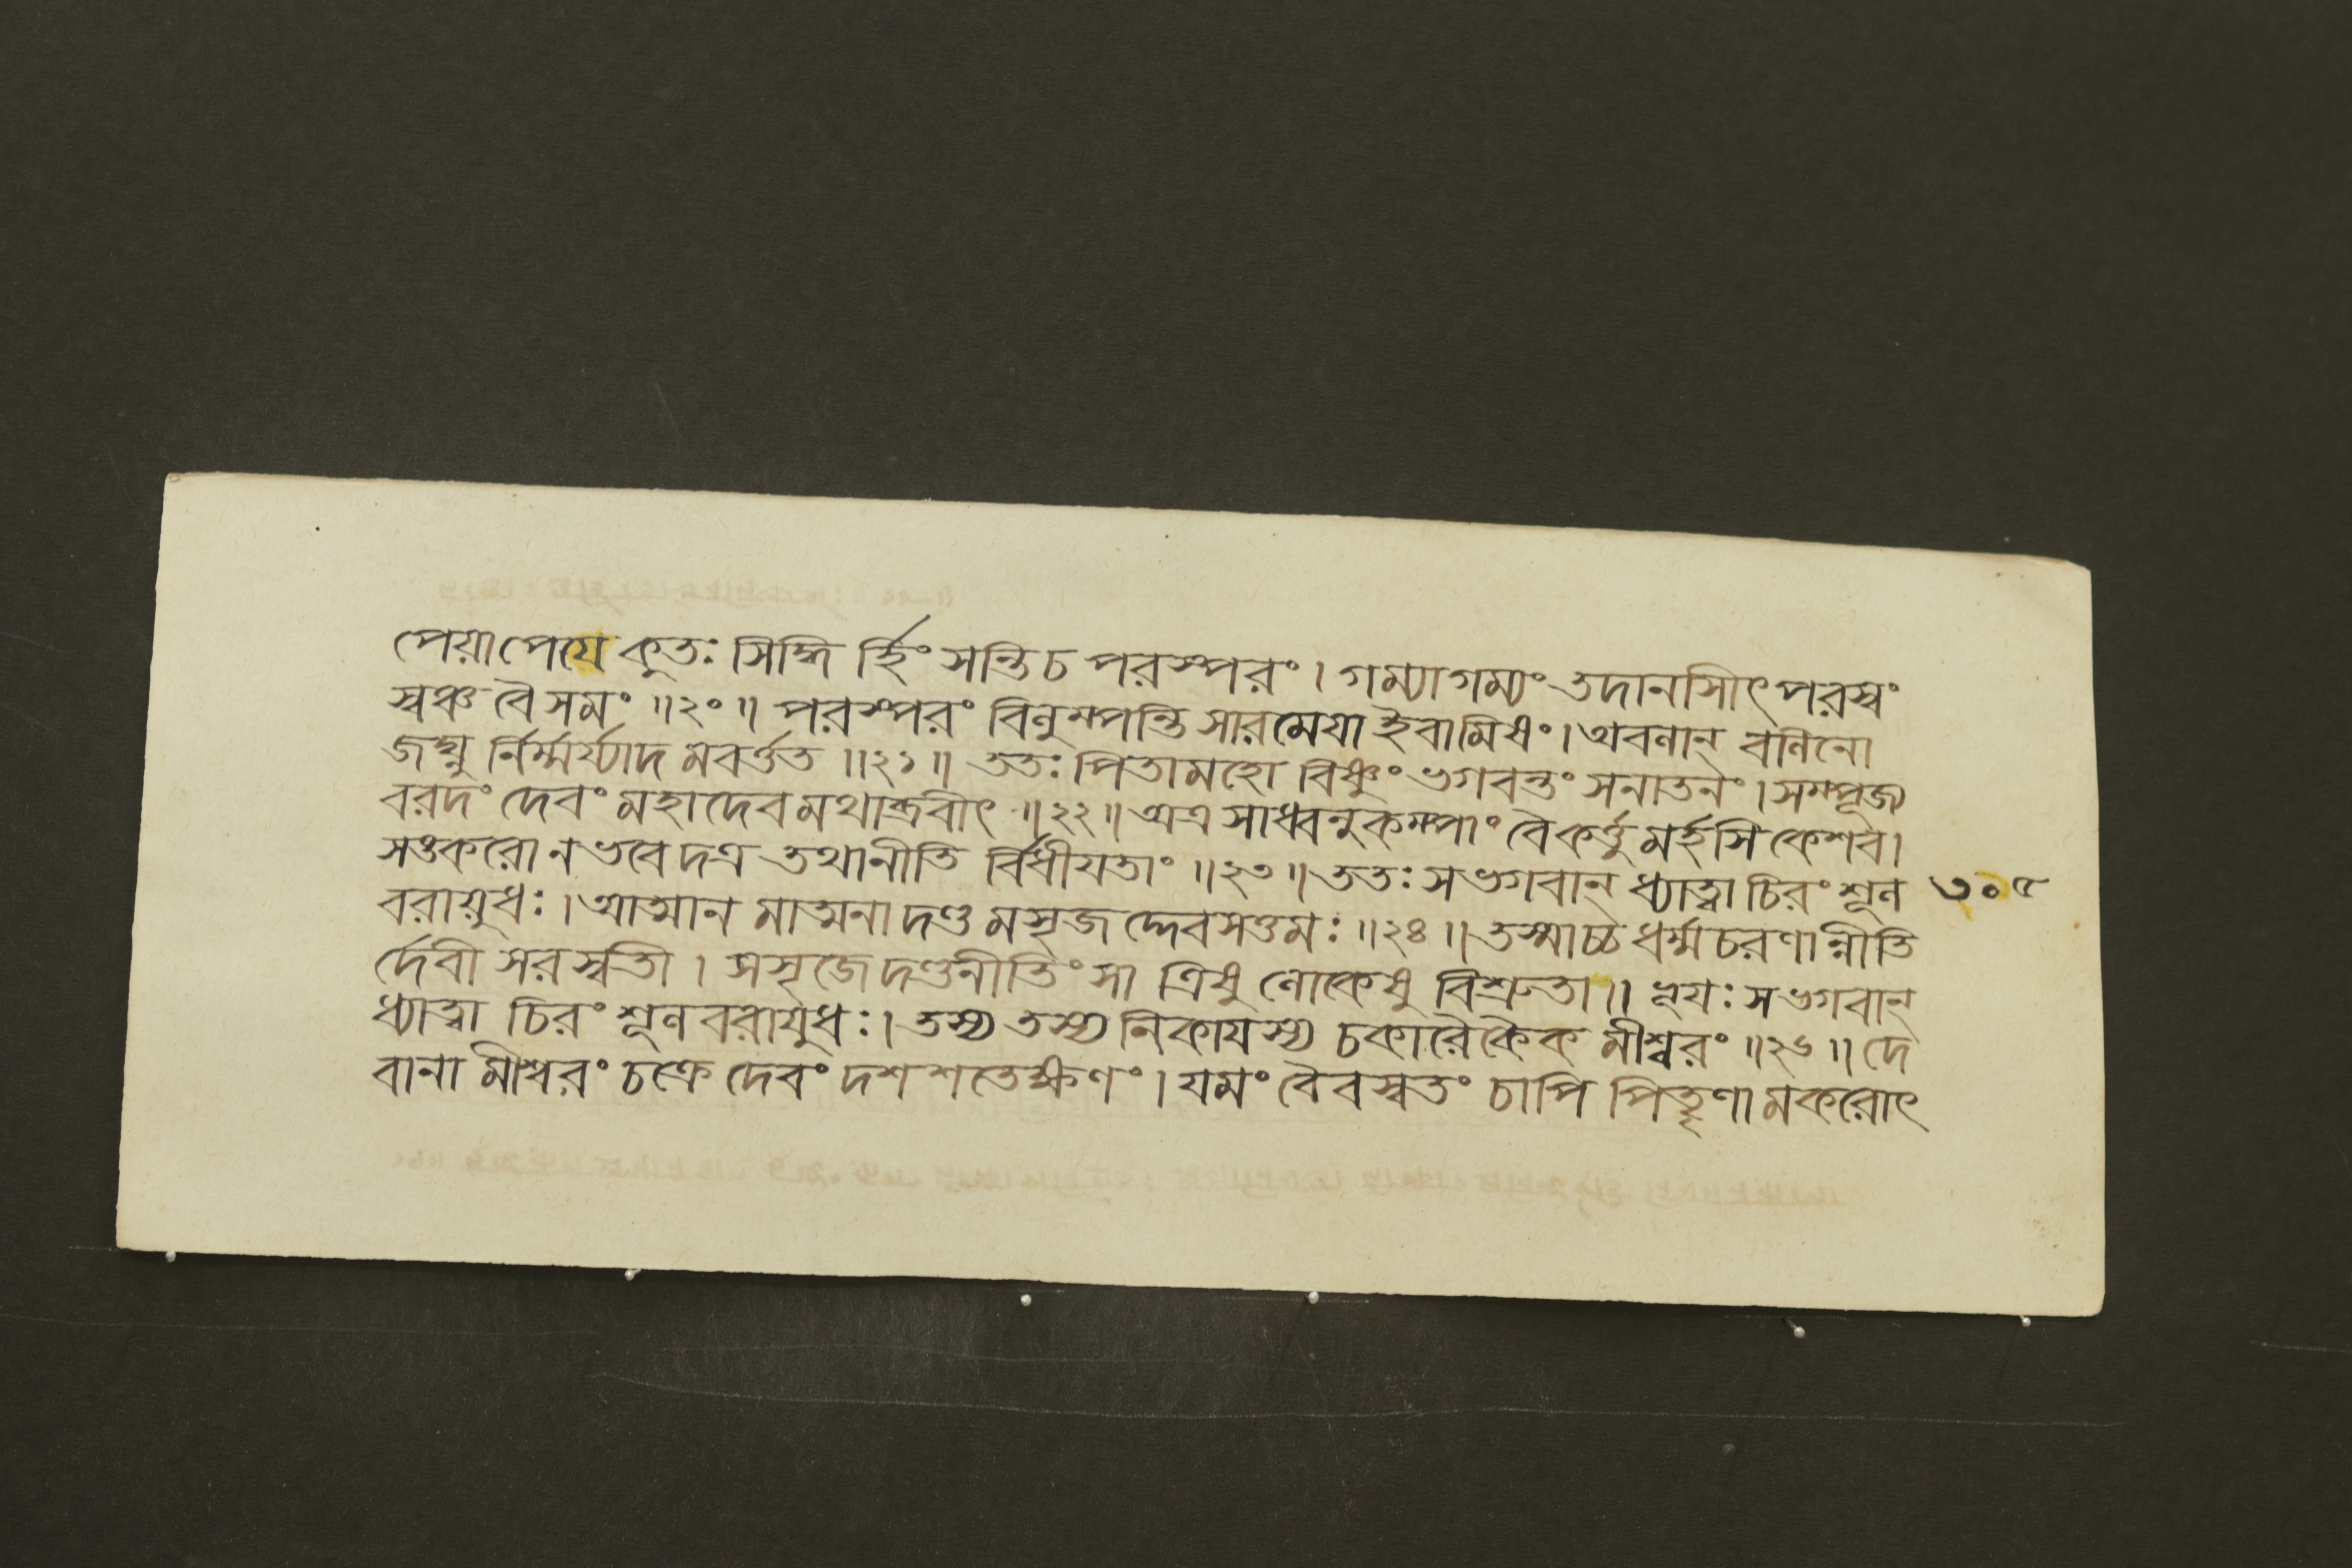 পেয়াপেযে কুতঃ সিদ্ধি র্হিংসন্তি চ পরস্পরং । গম্যাগম্যং তদানাসীৎ পরস্বং
স্বঞ্চ বৈ সমং ॥২০॥ পরস্পরং বিলুম্পন্তি সারমেযা ইবামিষং । অবলান্ বলিনো
জঘ্নু র্নির্ম্মর্য্যাদ মবর্ত্তত ॥২১॥ ততঃ পিতামহো বিষ্ণুং ভগবন্তং সনাতনং । সম্পূজ্য
বরদং দেবং মহাদেব মথাব্রবীৎ ॥২২॥ অত্র সাধ্বনুকম্পাং বৈ কর্ত্তু মর্হসি কেশব ।
সঙকরো ন ভবে দত্র তথা নীতি র্বিধীযতাং ॥২৩॥ ততঃ স ভগবান্ ধ্যাত্বা চিরং শূল ৩০৫
বরায়ুধঃ । আত্মান মাত্মনা দণ্ড মসৃজ দ্দেবসত্তমঃ ॥২৪॥ তস্মাচ্চ ধর্ম্মচরণান্নীতি
র্দেবী সরস্বতী । সসৃজে দণ্ডনীতিং সা ত্রিষু লোকেষু বিশ্রুতা ॥ ভূযঃ স ভগবান্
ধ্যাত্বা চিরং শূলবরাযুধঃ । তস্য তস্য নিকাযস্য চকারৈকৈক মীশ্বরং ॥২৬॥ দে
বানা মীশ্বরং চক্রে দেবং দশশতেক্ষণং । যমং বৈবস্বতং চাপি পিতৄণা মকরোৎ